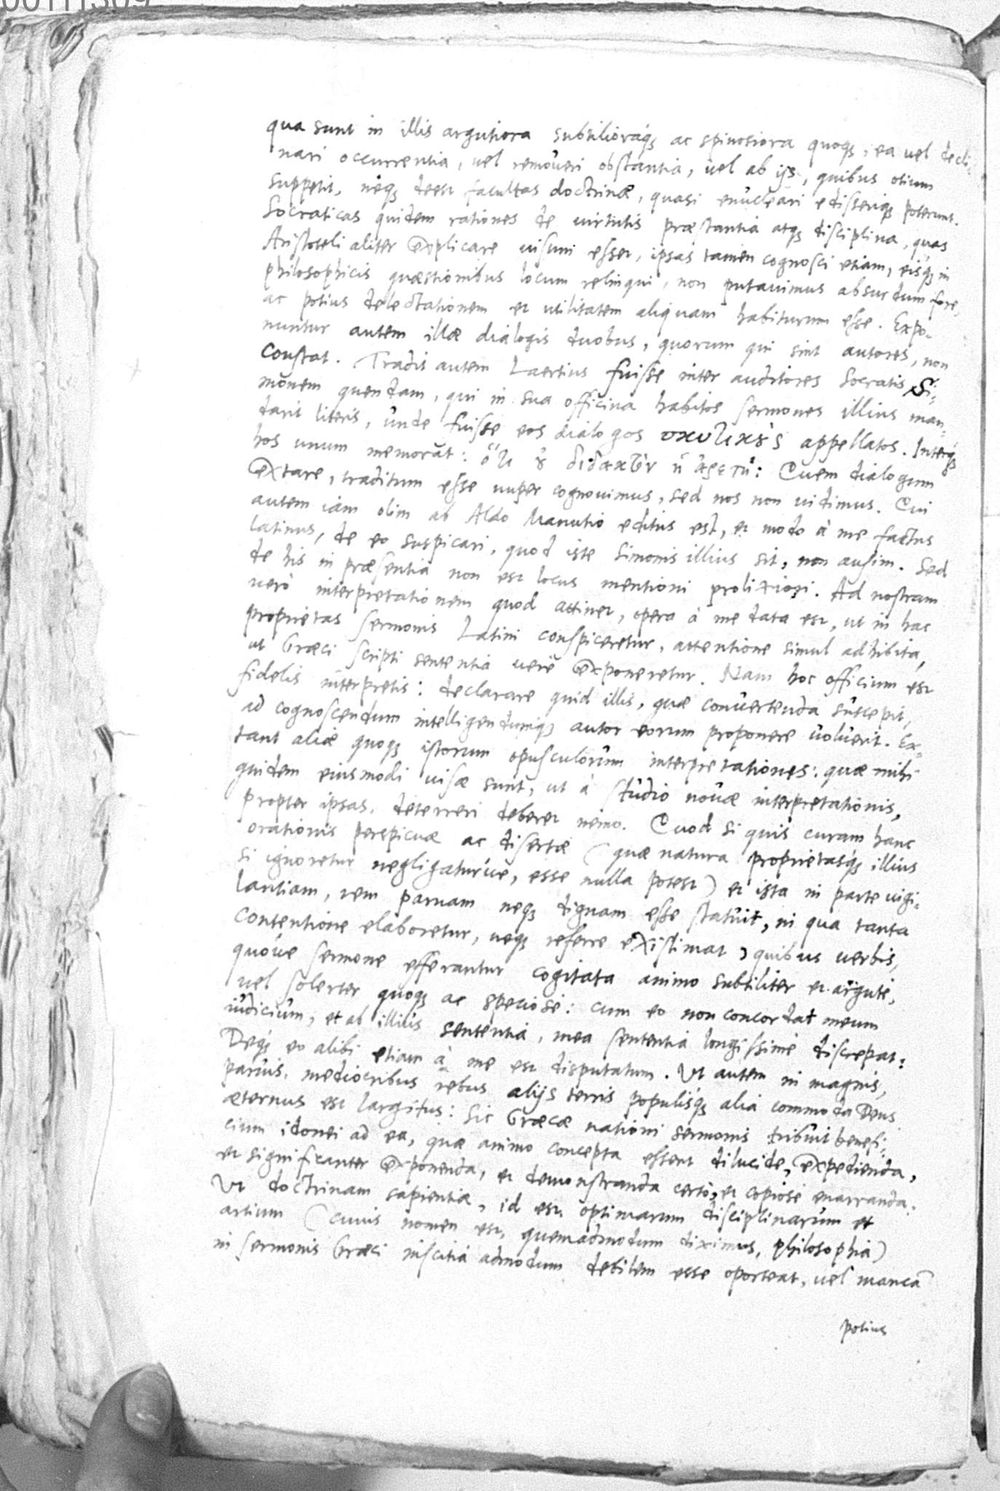 qua sunt in illis argutiora subtilioraq́; ac spinosiora quoq;, ea vel decli-
nari occurrentia, vel remoueri obstantia, vel ab ijs, quibus otium
suppetit, neq; deest facultas doctrinæ, quasi enucleari edisseriq; poterunt.
Socraticas quidem rationes de virtutis præstantia atq; disciplina, quas
Aristoteli aliter explicare uisum esset, ipsas tamen cognosci etiam, eisq́; in
philosophicis quæstionibus locum relinqui, non putauimus absurdum fore,
ac potius delectationem et utilitatem aliquam habiturum esse. Expo-
nuntur autem illæ dialogis duobus, quorum qui sint autores, non
constat. Tradit autem Laertius fuisse inter auditores Socratis Si-
monem quendam, qui in sua officina habitos sermones illius man-
darit literis, unde fuisse eos dialogos σκυτικοὺς appellatos. Interq́;
hos unum memorāt: ὅτι οὐ διδακτὸν ἡ ἀρετή: Quem dialogum
extare, traditum esse nuper cognouimus, sed nos non vidimus. Qui
autem iam olim ab Aldo Manutio editus est, et modo à me factus
latinus, de eo suspicari, quod iste Simonis illius sit, non ausim. Sed
de his in præsentia non est locus mentioni prolixiori. Ad nostram
uerò interpretationem quod attinet, opera à me data est, ut in hac
proprietas sermonis Latini conspiceretur, attentione simul adhibita,
ut Græci scripti sententia uerè exponeretur. Nam hoc officium est
fidelis interpretis: declarare quid illis, quæ conuertenda suscepit,
ad cognoscendum intelligendumq́; autor eorum proponere uoluerit. Ex-
tant aliæ quoq; istorum opusculorum interpretationes: quæ mihi
quidem eiusmodi uisæ sunt, ut à studio nouæ interpretationis,
propter ipsas, deterreri deberet nemo. Quod si quis curam hanc
orationis perspicuæ ac disertæ (quæ natura proprietasq́; illius
si ignoretur negligaturúe, esse nulla potest) et ista in parte uigi-
lantiam, rem paruam neq; dignam esse statuit, in qua tanta
contentione elaboretur, neq; referre existimat, quibus verbis,
quoue sermone efferantur cogitata animo subtiliter et argutè,
vel solerter quoq; ac speciosè: cum eo non concordat meum
iudicium, et ab illius sententia, mea sententia longissime discrepat:
Deq́; eo alibi etiam à me est disputatum. Vt autem in magnis,
paruis, mediocribus rebus alijs terris populisq́; alia commoda Deus
æternus est largitus: Sic Græcæ nationi sermonis tribuit benefi-
cium idonei ad ea, quæ animo concepta essent dilucide, expedienda,
et significanter exponenda, et demonstranda certò, et copiosè enarranda.
Vt doctrinam sapientia, id est, optimarum disciplinarum et
artium (cuius nomen est, quemadmodum diximus, philosophia)
in sermonis Græci inscitia admodum debilem esse oporteat, vel mancā
potius